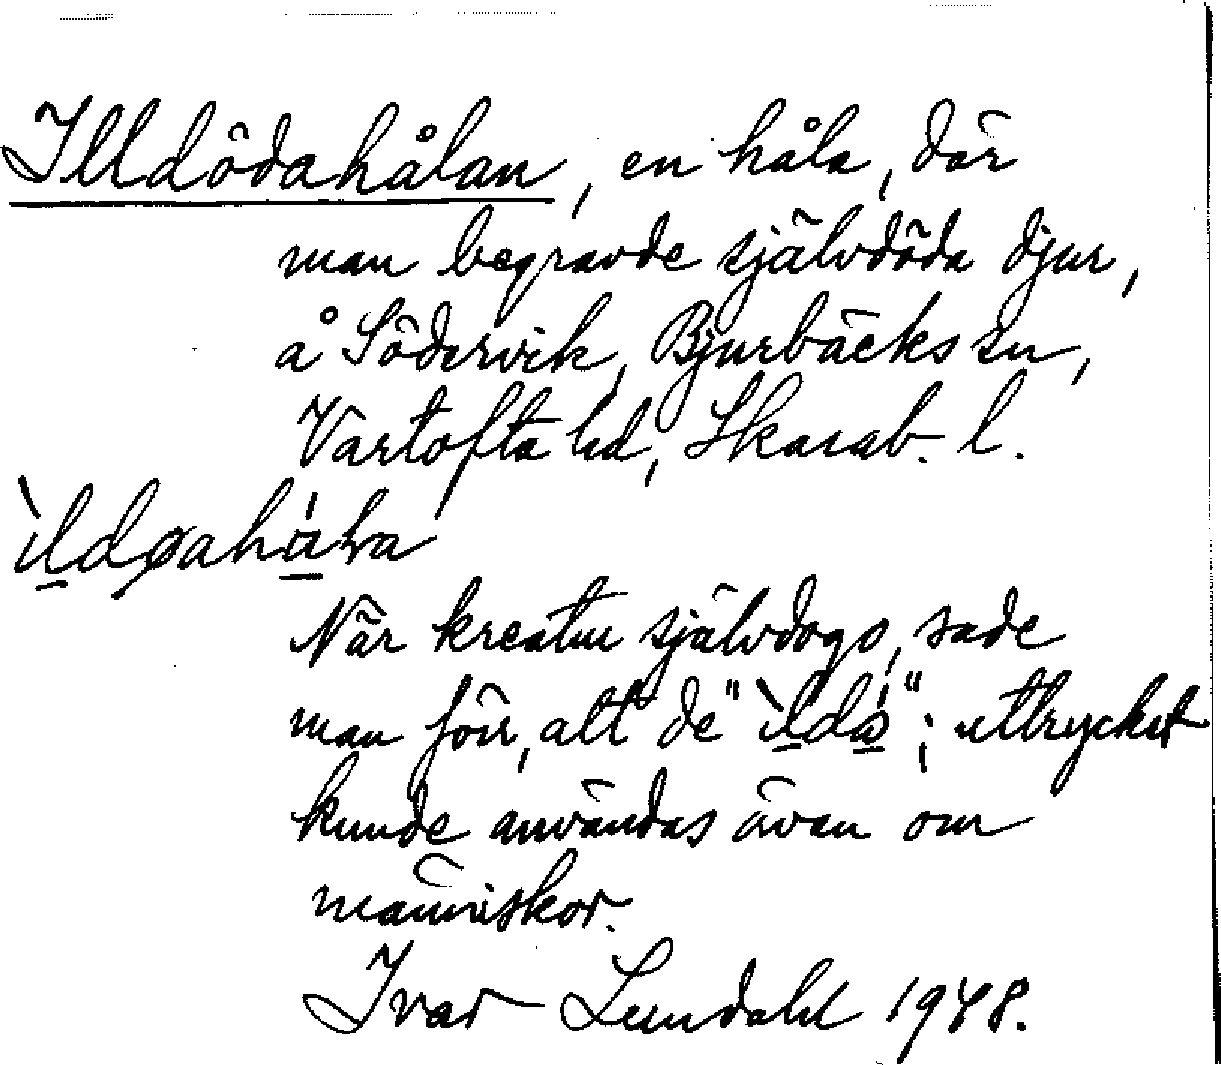 Illdödahålan, en håla, där
man begravde självdöda djur,
å Södervik, Bjurbäcks sn,
Vartofta hd, Skarab. l.
När kreatur självdogo, sade
man förr, att de "ìldå"; uttrycket
kunde användas även om
människor.
Ivar Lundahl 1948.